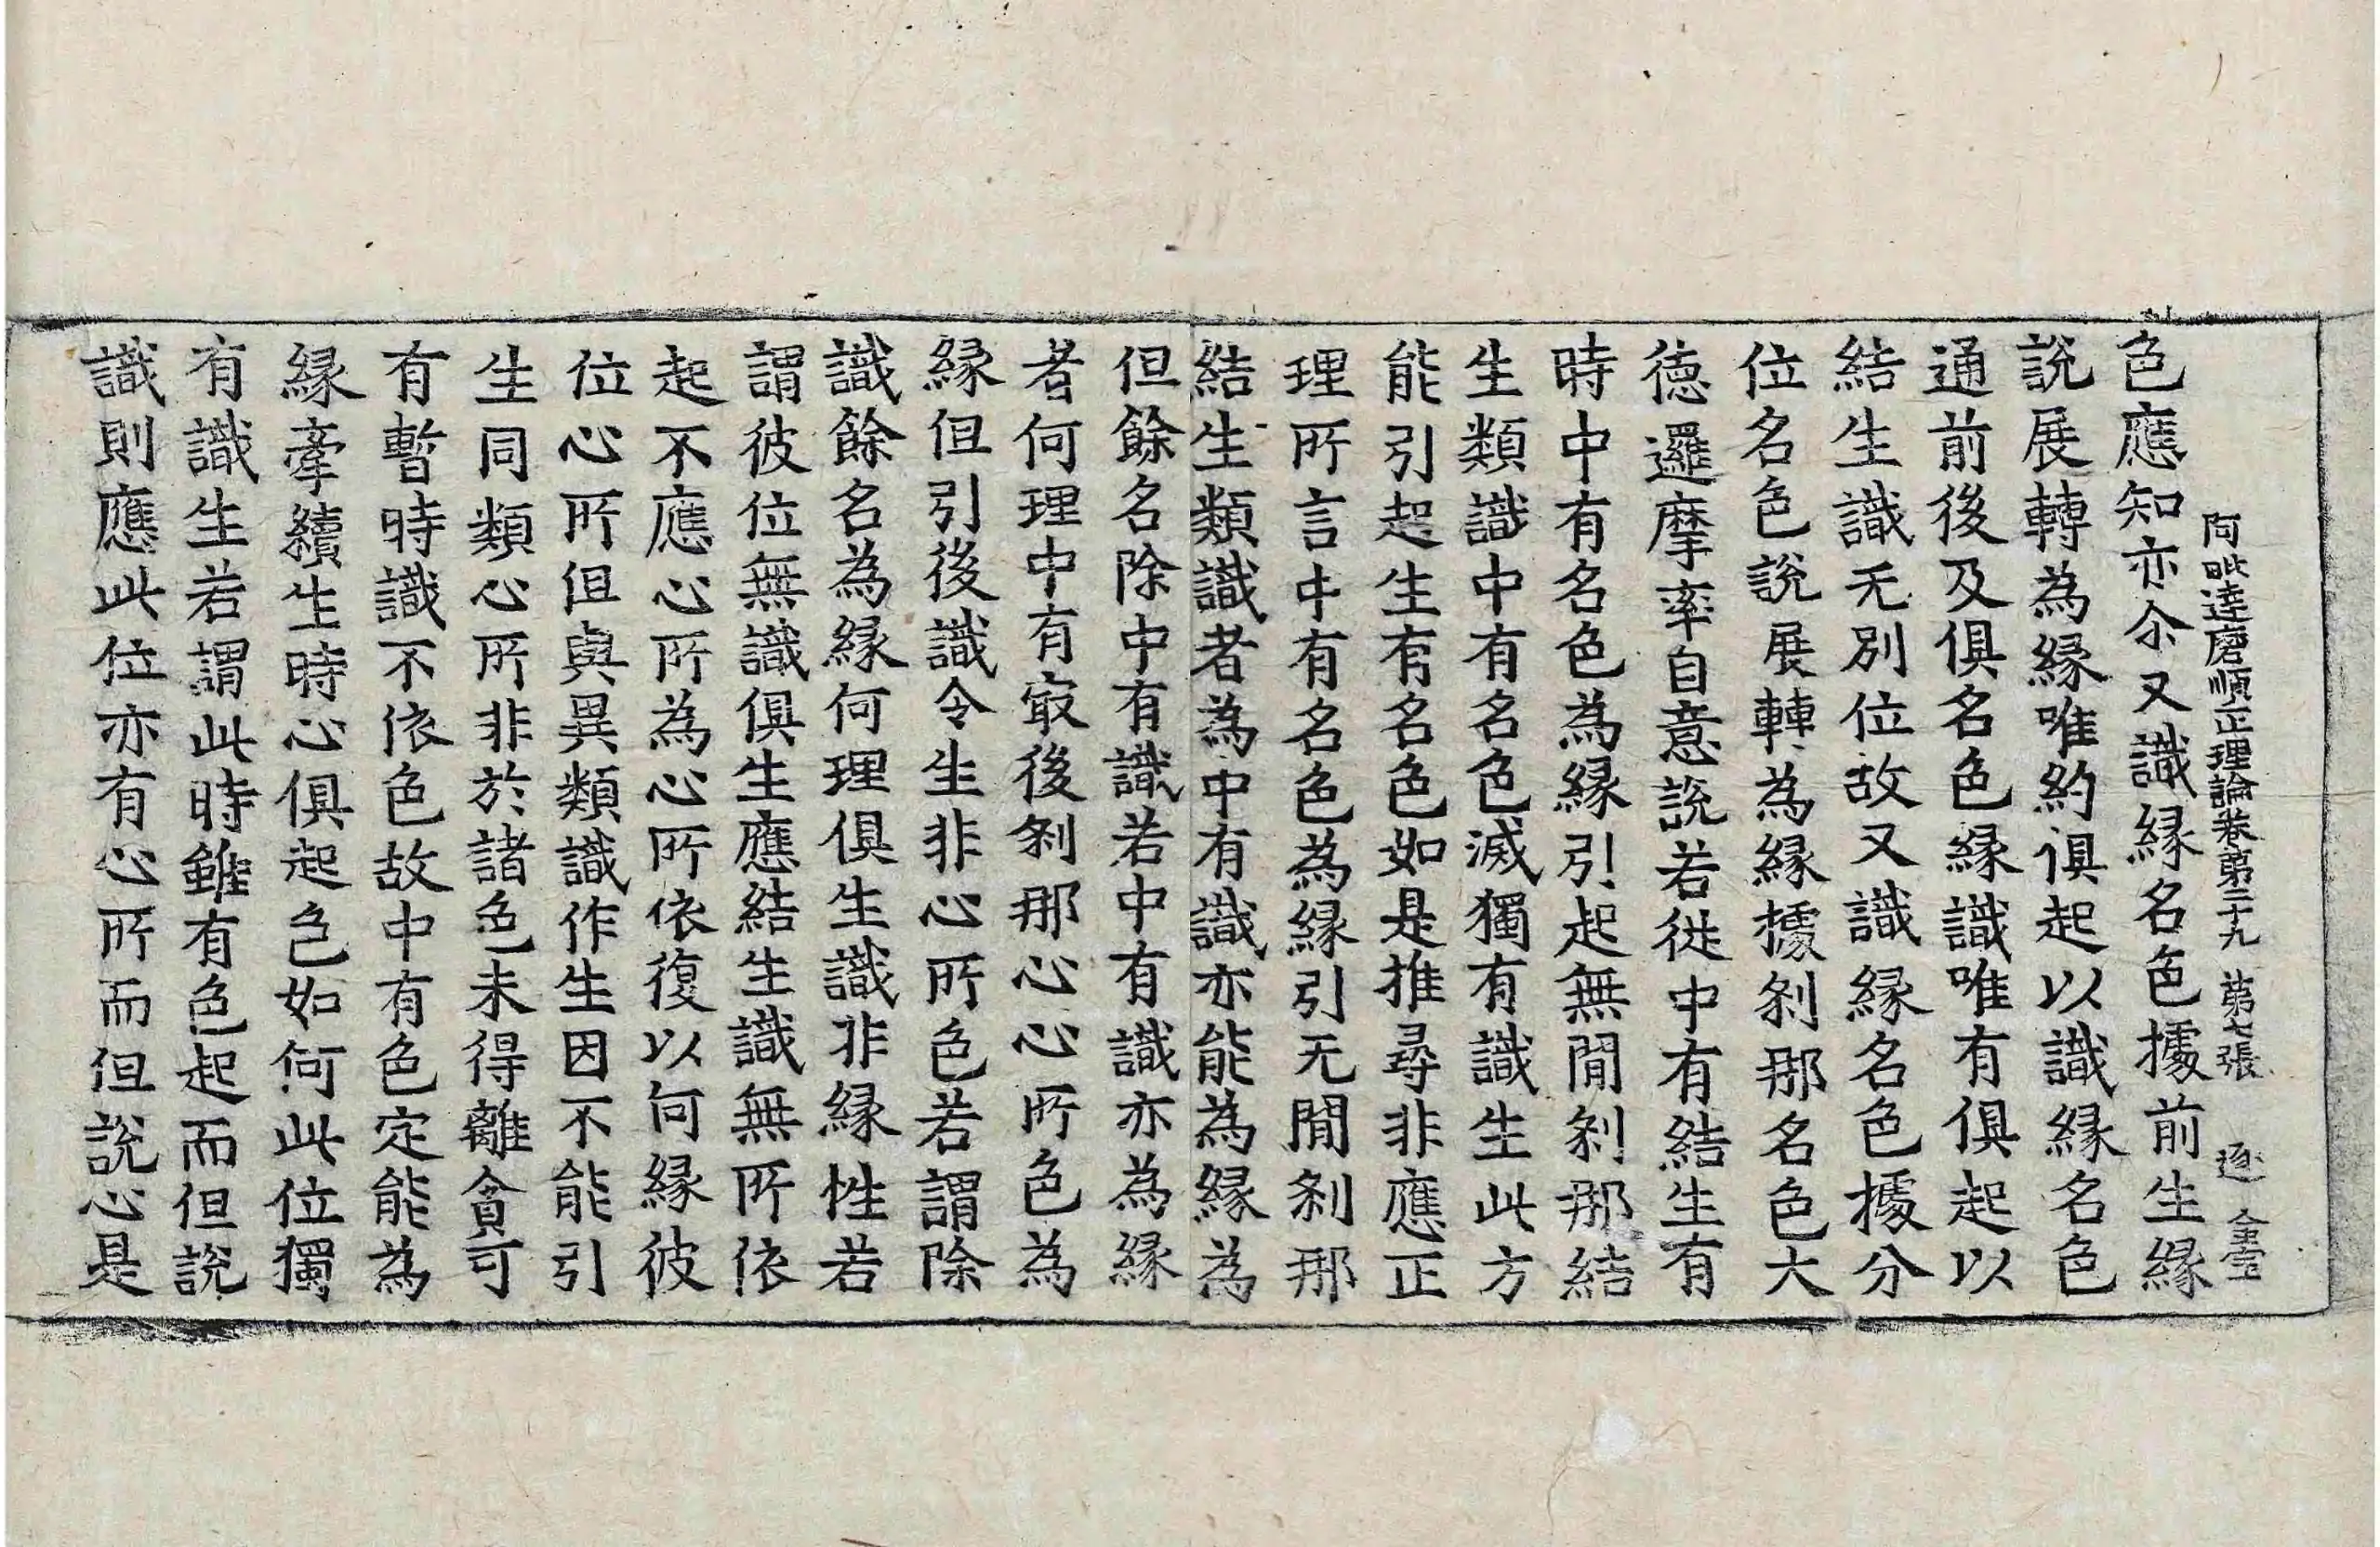 阿毗達磨順正理論卷第二十九　第七張　逐
色應知亦尒又識緣名色據前生緣
說展轉為緣唯約俱起以識緣名色
通前後及俱名色緣識唯有俱起以
結生識无別位故又識緣名色據分
位名色說展轉為緣據剎那名色大
德邏摩率自意說若從中有結生有
時中有名色為緣引起無間剎那結
生類識中有名色滅獨有識生此方
能引起生有名色如是推尋非應正
理所言中有名色為緣引无間剎那
結生類識者為中有識亦能為緣為
但餘名除中有識若中有識亦為緣
者何理中有㝡後剎那心心所色為
緣但引後識令生非心所色若謂除
識餘名為緣何理俱生識非緣性若
謂彼位無識俱生應結生識無所依
起不應心所為心所依復以何緣彼
位心所但與異類識作生因不能引
生同類心所非於諸色未得離貪可
有暫時識不依色故中有色定能為
緣牽續生時心俱起色如何此位獨
有識生若謂此時雖有色起而但說
識則應此位亦有心所而但說心是